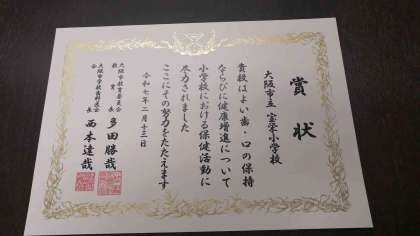 賞状
大阪市立 宝栄小学校
貴校はよい歯・口の保持
ならびに健康増進について
小学校における保健活動に
尽力されました
ここにその努力をたたえます
令和七年二月十三日
大阪市教育委員会
教育長 多田勝哉
大阪市学校歯科医会
会長 西本達哉